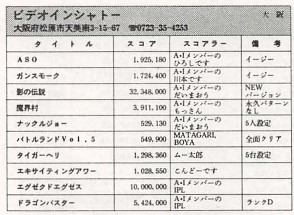 ビデオインシャトー 大阪
大阪府松原市天美南3-15-67 ☎0723-35-4253
タイトル スコア スコアラー 備考
ASO 1,925,180 A・Iメンバーの ひろしです イージー
ガンスモーク 1,724,400 A・Iメンバーの 川本です イージー
影の伝説 32,348,000 A・Iメンバーの だいまおう NEW バージョン
魔界村 3,911,100 A・Iメンバーの もっさん 永久パターン なし
ナックルジョー 529,130 A・Iメンバーの だいまおう 5人設定
バトルランドVol.5 549,900 MATAGARI, BOYA 全面クリア
タイガーヘリ 1,298,360 ムー太郎 5台設定
エキサイティングアワー 1,028,550 こんどーです
エグゼクドエグゼス 10,000,000 A・Iメンバーの IPL
ドラゴンバスター 5,424,000 A・Iメンバーの IPL ランクD